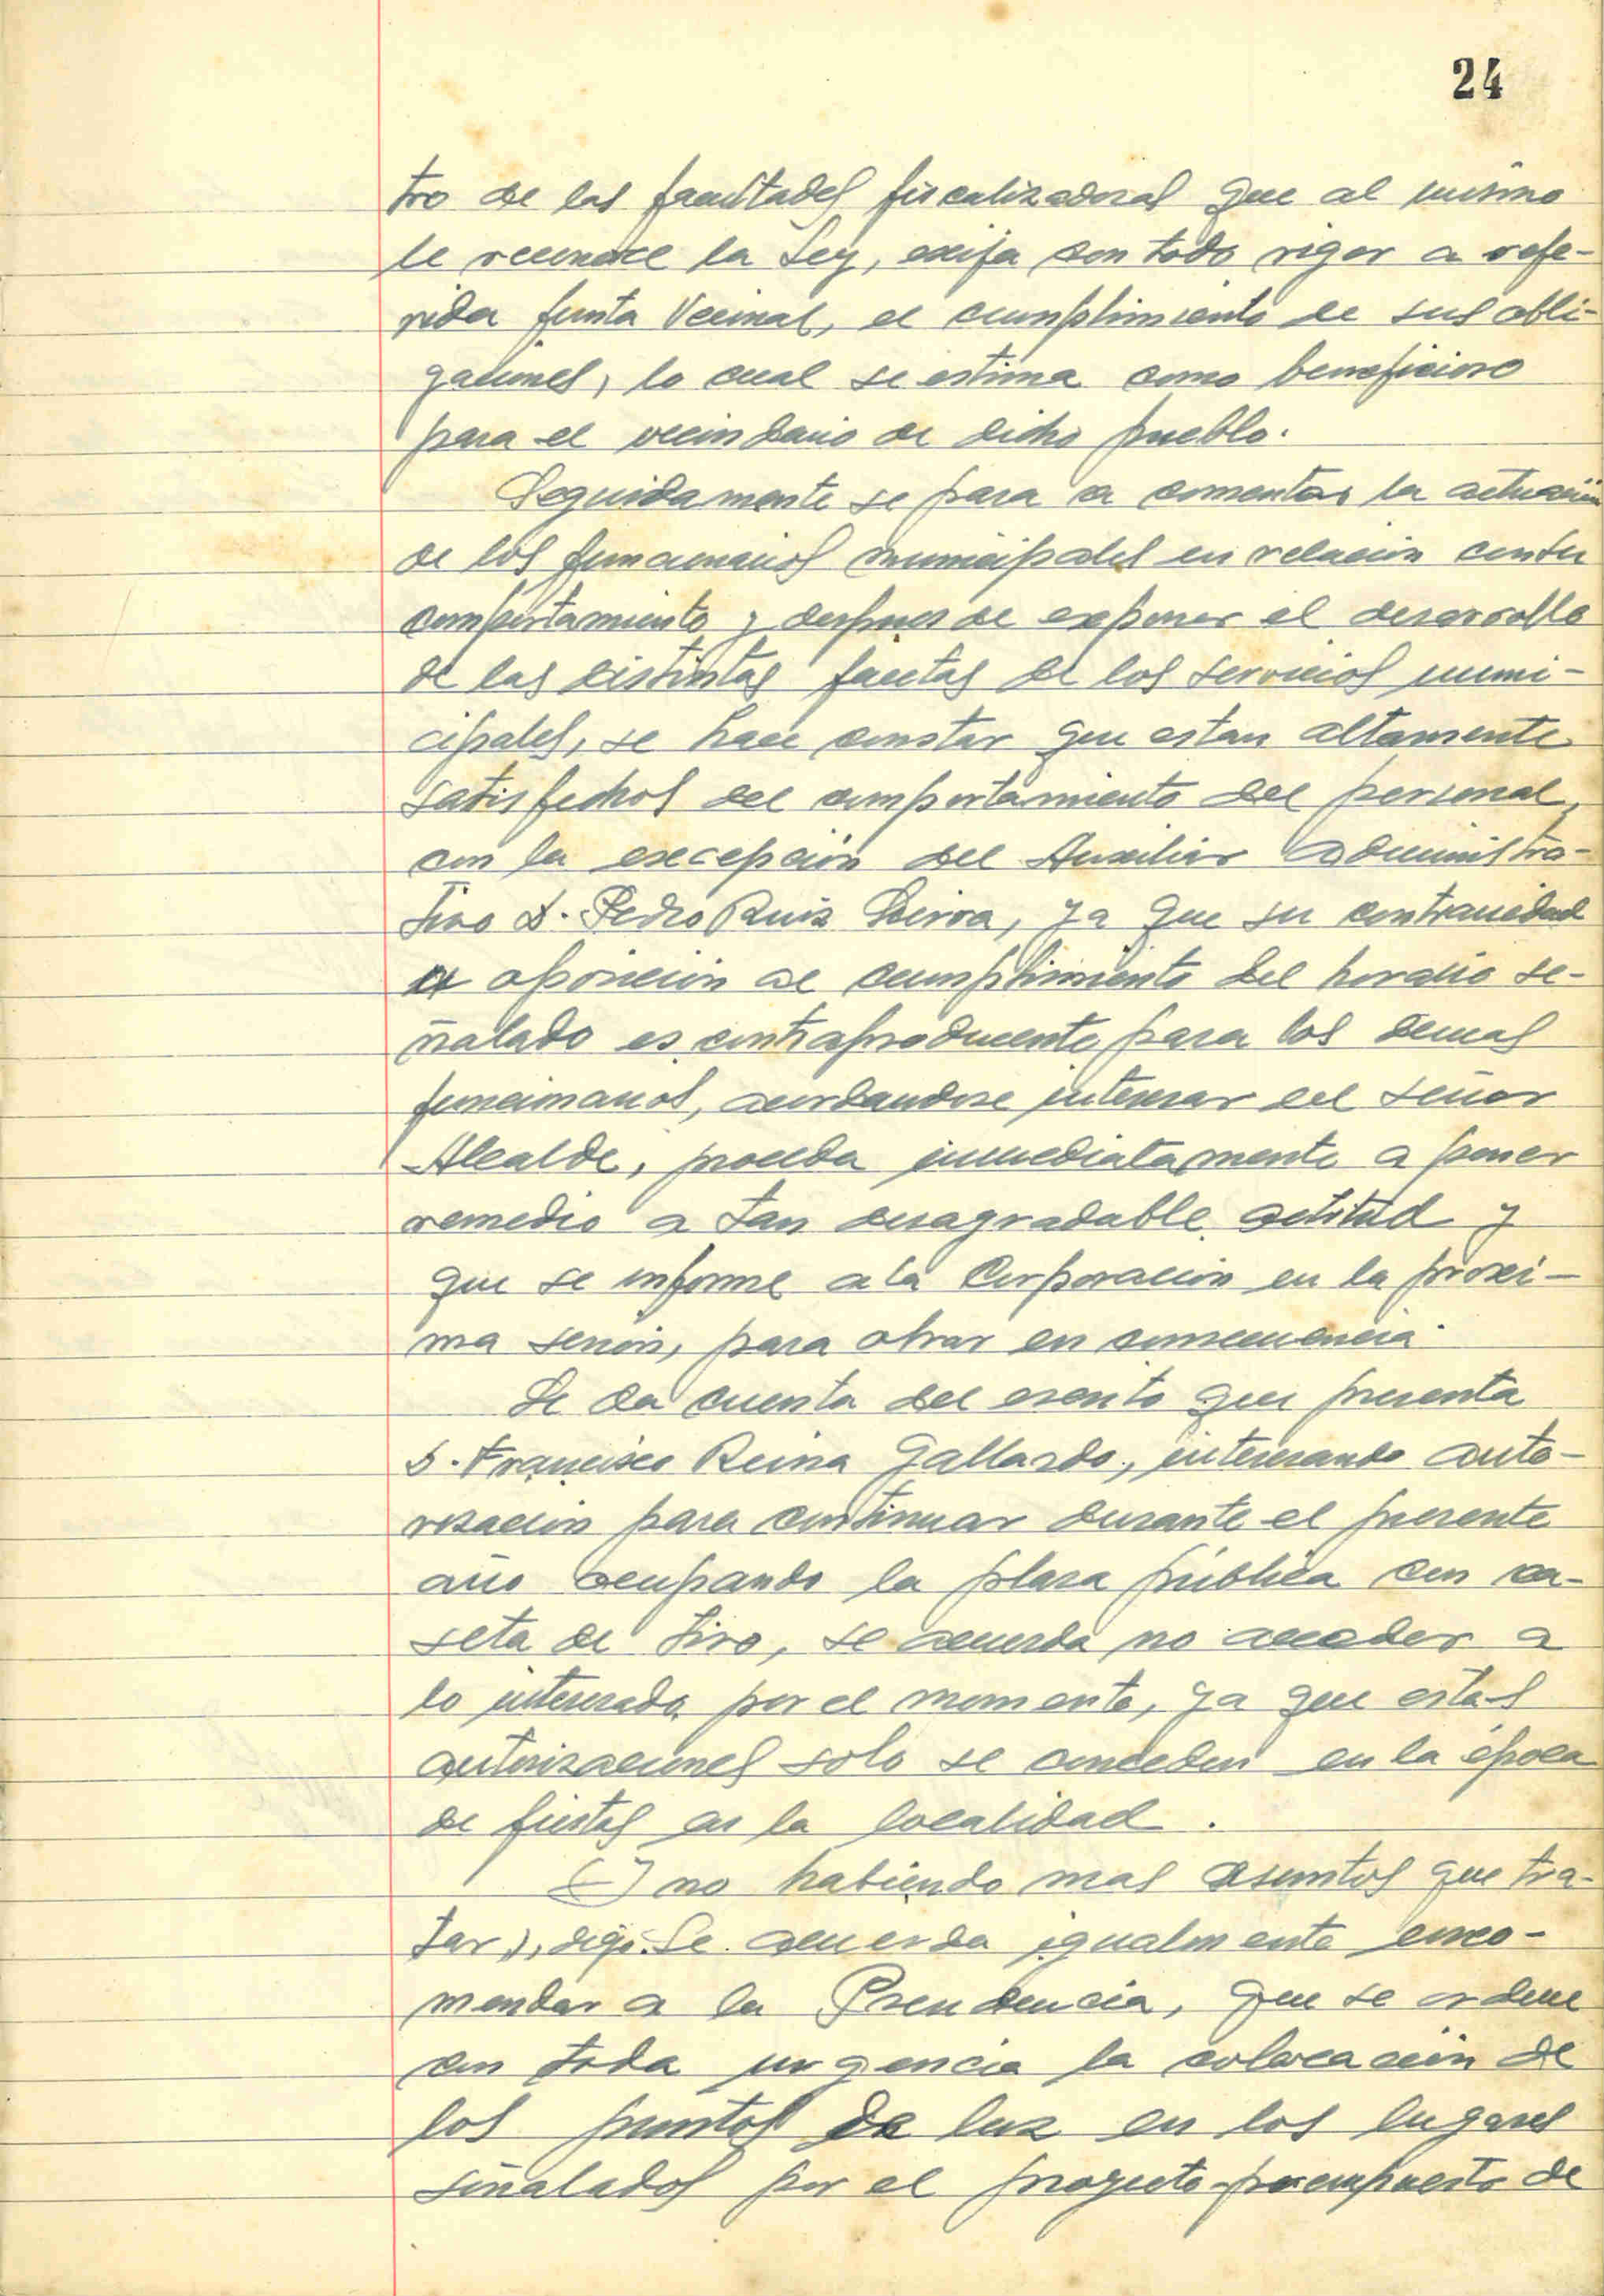 24
tro de las facultades fiscalizadoras que al mismo
le reconoce la Ley, exija con todo rigor a refe-
rida Junta Vecinal, el cumplimiento de sus obli-
gaciones, lo cual se estima como beneficioso
para el vecindario de dicho pueblo.
Seguidamente se pasa a comentar la actuación
de los funcionarios municipales en relación con su
comportamiento y despues de exponer el desarrollo
de las distintas facetas de los servicios muni-
cipales, se hace constar que estan altamente
satisfechos del comportamiento del personal,
con la excepción del Auxiliar Administra-
tivo D. Pedro Ruiz , ya que su contrariedad
u oposición al cumplimiento del horario se-
ñalado es contraproducente para los demas
funcionarios, acordandose interesar del señor
Alcalde, proceda inmediatamente a poner
remedio a tan desagradable actitud y
que se informe a la Corporación en la proxi-
ma sesión, para obrar en consecuencia.
Se da cuenta del escrito que presenta
D. Francisco Reina Gallardo, interesando auto-
rización para continuar durante el presente
año ocupando la plaza pública con ca-
seta de tiro, se acuerda no acceder a
lo interesado por el momento, ya que estas
autorizaciones solo se conceden en la época
de fiestas en la localidad.
(Y no habiendo mas asuntos que tra-
tar), digo. Se acuerda igualmente enco-
mendar a la Presidencia, que se ordene
con toda urgencia la colocación de
los puntos de luz en los lugares
señalados por el proyecto-presupuesto de